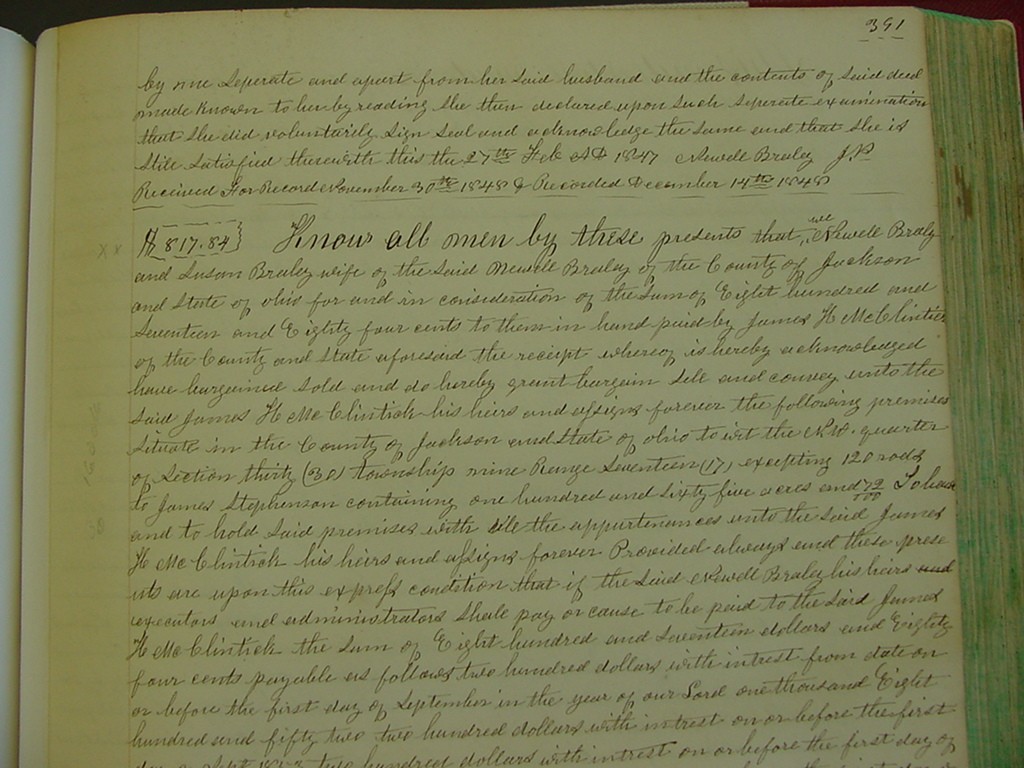 391
by me Seperate and apart from her said husband and the contents of said deed
made known to her by reading she then declared upon such seperate examination
that she did voluntarily sign seal and acknowledge the same and that she is
still satisfied therewith this the 27th Feb AD 1847 Newell Braley JP
Received For Record November 30th 1848 & Recorded December 14th 1848
$ 817.84} Know all men by these presents that we Newell Braly
and Susan Braley wife of the said Newell Braley of the County of Jackson
and State of ohio for and in consideration of the sum of Eight hundred and
Seventeen and Eighty four cents to them in hand paid by James H McClintick
of the County and State aforesaid the receipt whereof is hereby acknowledged
have bargained sold and do hereby grant bargain sell and convey unto the
said James H McClintick his heirs and assigns forever the following premises
situate in the County of Jackson and State of ohio to wit the N.W. quarter
of Section thirty (30) township nine Range Seventeen (17) excepting 120 rods
to James Stephenson containing one hundred and sixty five acres and 72/100 To have
and to hold said premises with all the appurtenances unto the said James
H McClintick his heirs and assigns forever Provided always and these prese
nts are upon this express condition that if the said Newell Braley his heirs and
executors and administrators shall pay or cause to be paid to the said James
H McClintick the sum of Eight hundred and Seventeen dollars and Eighty
four cents payable as follows two hundred dollars with intrest from date on
or before the first day of September in the year of our Lord one thousand Eight
hundred and fifty two two hundred dollars with intrest on or before the first
day Sept 1853 two hundred dollars with intrest on or before the first day of